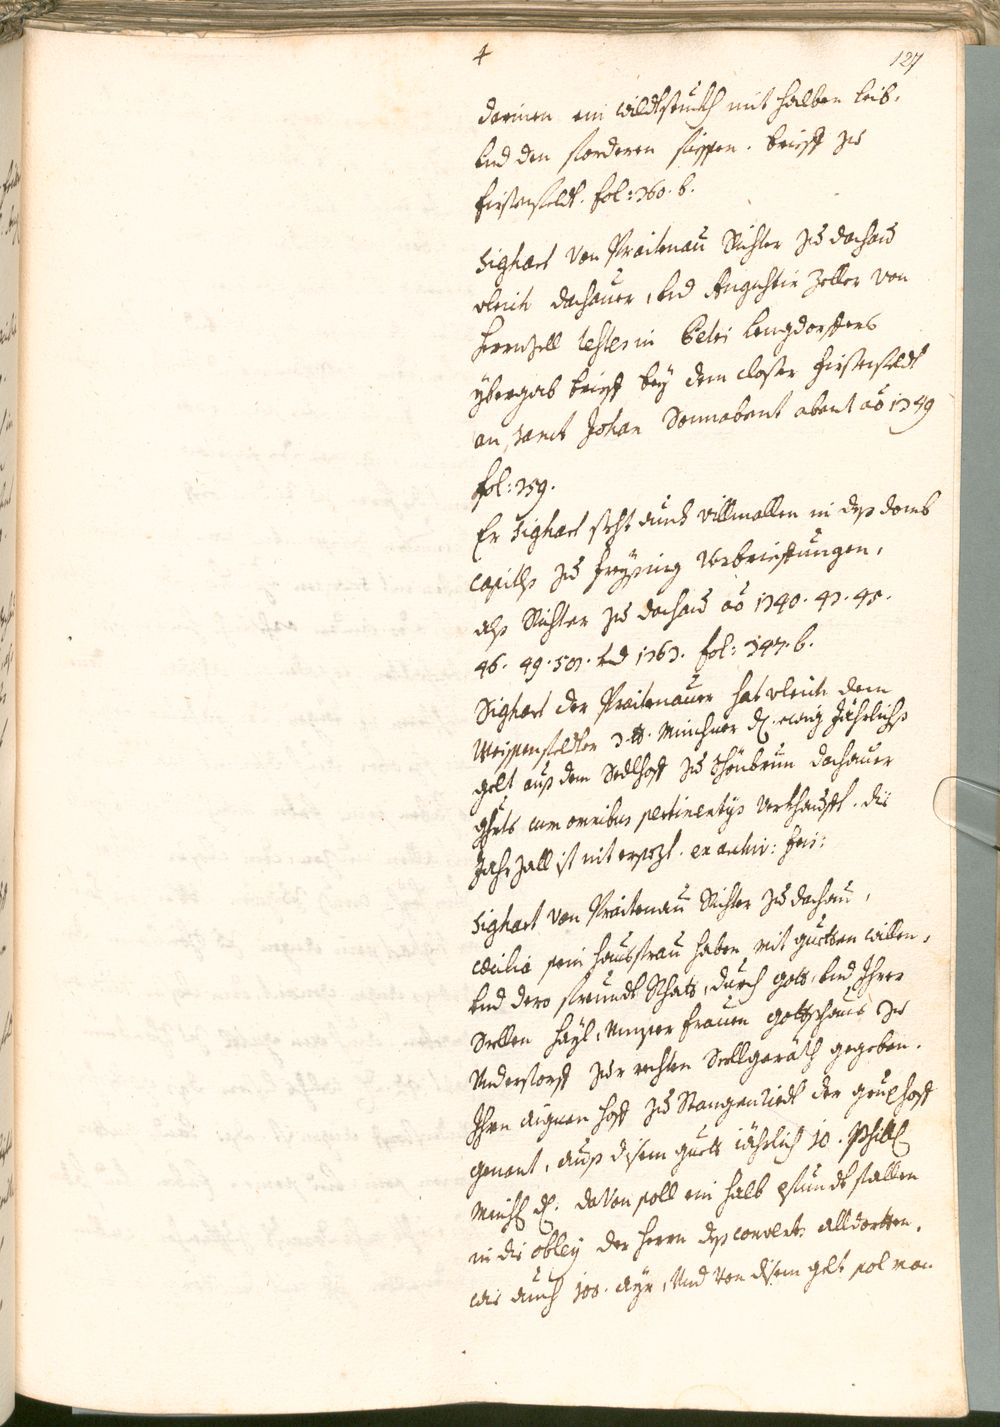 4
127
darinen ein wildtstuckh mit halben leib,
und den forderen fiessen. brieff zu
fürstenfeldt. fol: 360. b.
Sighart von Praitenau Richter zu dachau
vlrich dachauer, und Augustin Zeller von
Herrnzell testes in Petri Lengdorffers
ybergab brieff bey dem closter fürstenfeldt
an sanct Johan Sonnabent abent ao 1349
fol: 359.
Er Sighart steht auch villmallen in deß domb
capitlß zu freysing verbrieffungen,
alß Richter zu dachau ao 1340. 43. 45.
46. 49. 50. und 1363. fol: 347. b.
Sighart der Praitenauer hat vlrich dem
Weissenfeldter 3 lb. Minchner d. ewig Jährlichß
gelt auß dem Sedlhoff zu Schönbrun dachauer
ghrts cum omnibus pertinentijs verkhaufft. die
Jahrzall ist nit ersezt. ex archiv: freis:
Sighart von Praitenau Richter zu dachau,
Cæcilia sein hausfrau haben mit guetten willen,
und dero freundt Rhatt, durch gott, und Ihrer
Seellen hayl, Unser frauen gottßhaus zu
Understorff zur rechten Seellgeräth gegeben.
Ihren aignen hoff zu Stangenriedt der gruebhoff
genant, auß disem guett iährlich 10. Schill
Minch d. davon soll ein halb pfundt fallen
in die obley der herrn deß convents alldortten.
wie auch 100. ayr, Und von disem gelt sol man